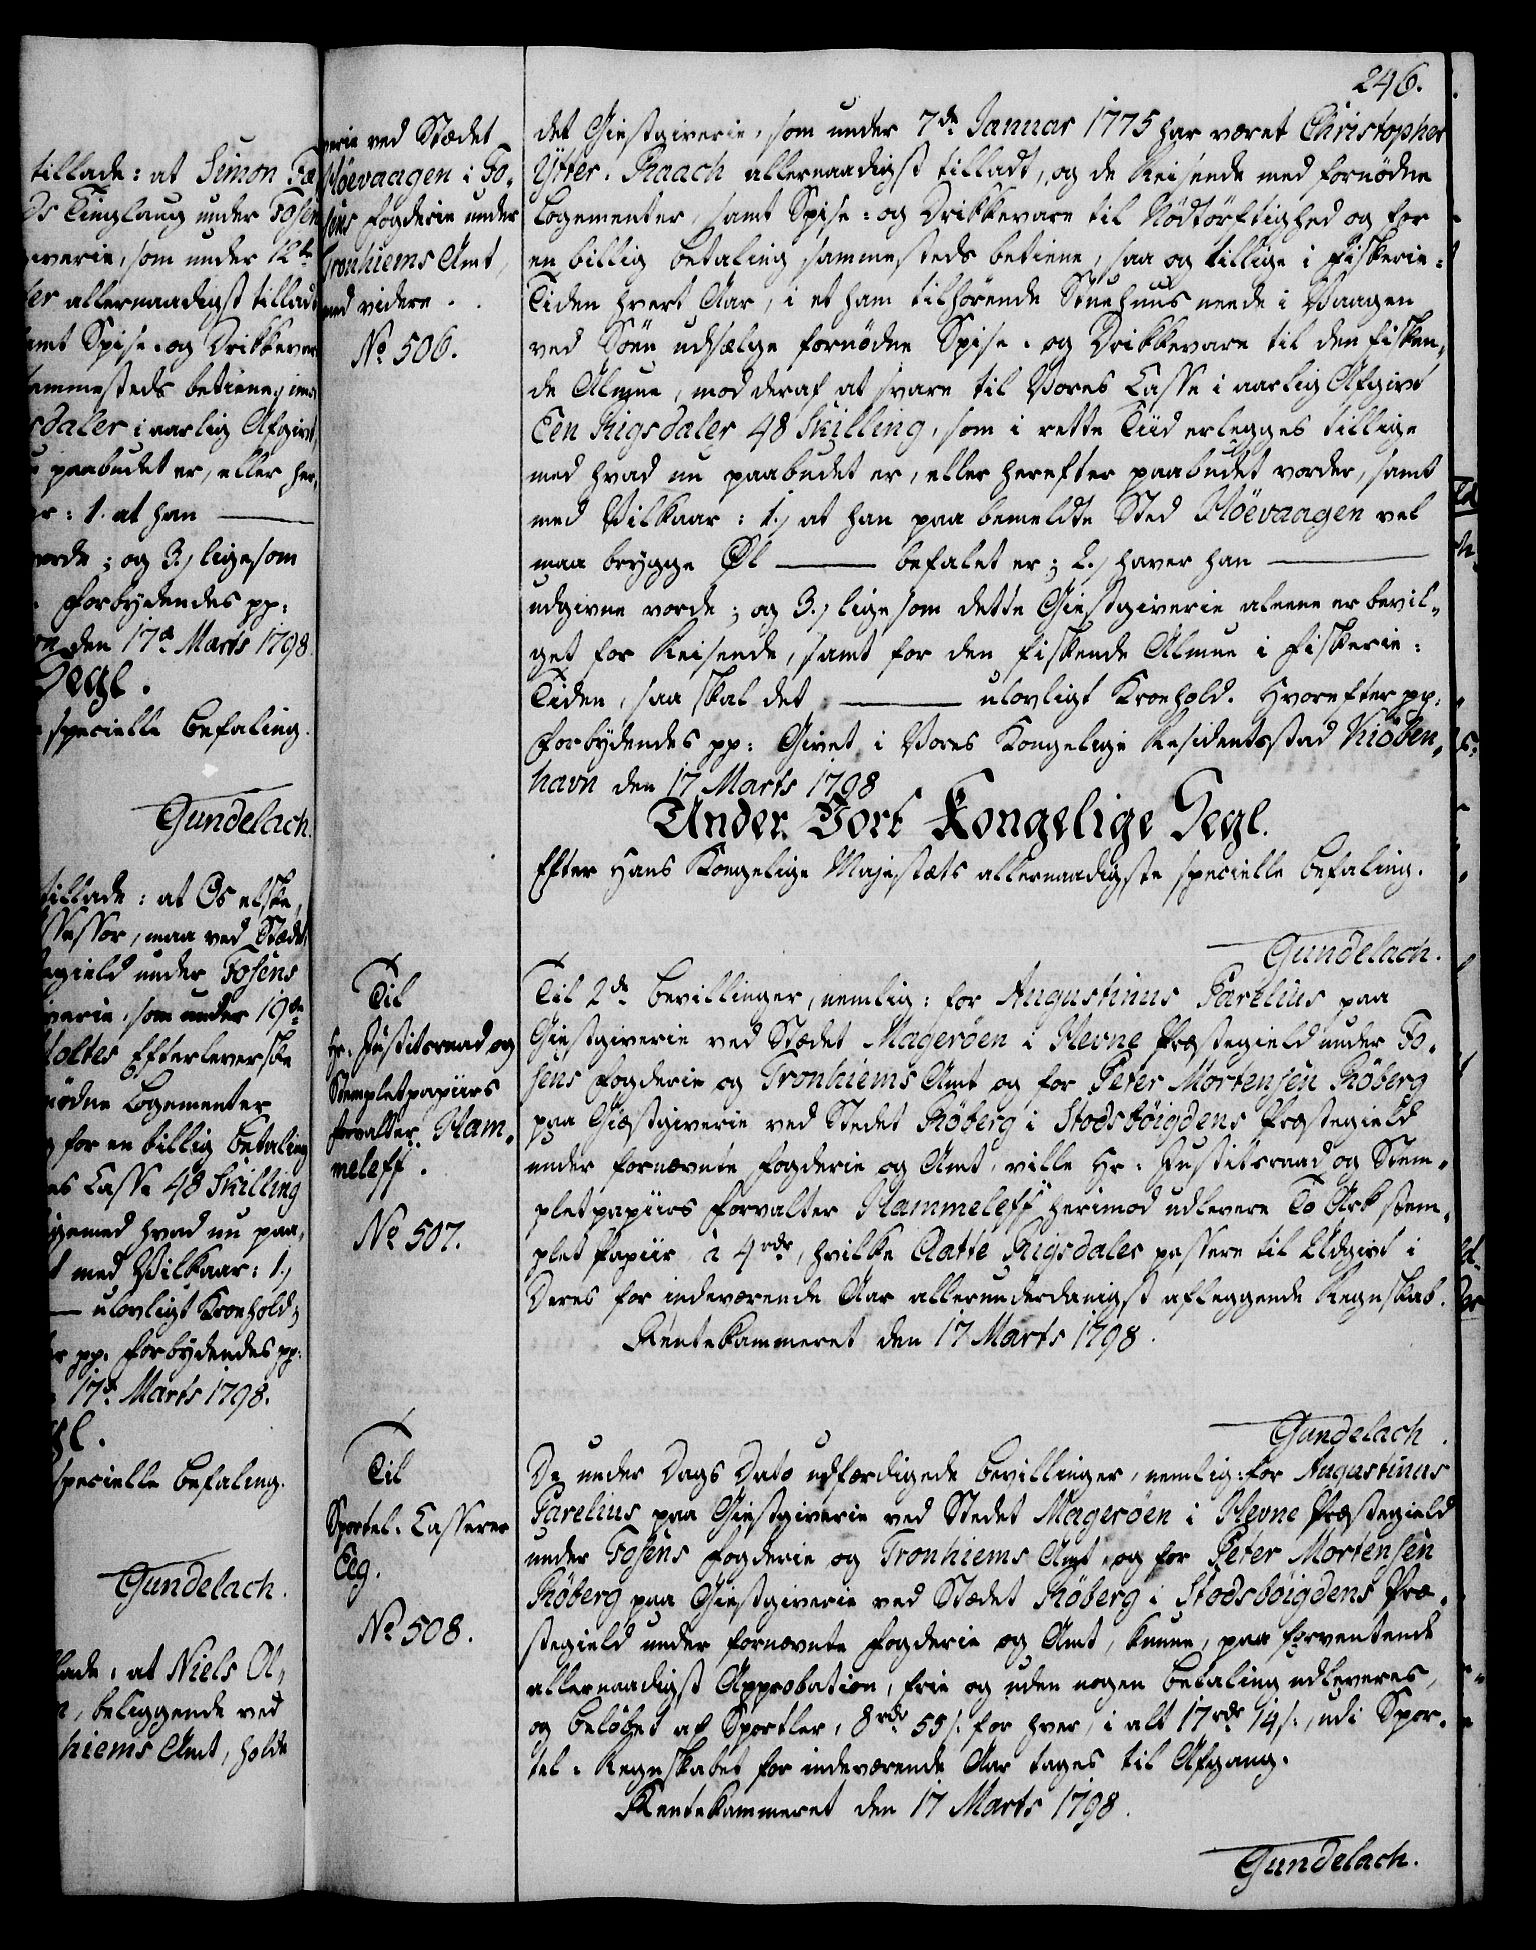 246.
tillade: at Simon Fæ
ds Tinglaug under Fosen
iverie, som under 12te
er allernaadigst tilladt
amt Spise- og Drikkevar
sammesteds betiene, imo
sdaler i aarlig Afgivt,
u paabudet er, eller her,
r: 1. at han ———
vorde; og 3.) ligesom
forbydendes pp:
n den 17de Marts 1798.
Segl.
specielle Befaling.
Gundelach.
tillade: at Os elske,
ssessor, maa ved Stædet
egield under Fosens
iverie, som under 19de
toltes Efterleverske
nödne Logementer
g for en billig Betaling
es Casse 48 Skilling
igemed hvad nu paa,
t med Vilkaar: 1.)
— ulovligt Kroehold;
er pp. forbydendes pp:
17de Marts 1798.
gl.
specielle Befaling.
Gundelach.
lade, at Niels Ol,
n, beliggende ved
hiems Amt, holde
verie ved Stædet
Höevaagen i Fo,
sens Fogderie under
Tronhiems Amt,
med videre.
No 506.
det Giestgiverie, som under 7de Januar 1775 har været Christopher
Ytter. Raach allernaadigst tilladt, og de Reisende med fornødne
Logementer, samt Spise- og Drikkevare til Nödtörftighed og for
en billig Betaling sammesteds betiene, saa og tillige i Fiskerie-
Tiden hvert Aar, i et ham tilhörende Stuehuus neede i Vaagen
ved Söen udsælge fornödne Spise- og Drikkevare til den fisken,
de Almue, mod deraf at svare til Vores Casse i aarlig Afgivt
Een Rigsdaler 48 Skilling, som i rette Tiid erlegges tillige
med hvad nu paabudet er, eller herefter paabudet vorder, samt
med Vilkaar: 1.) at han paa bemeldte Sted Höevaagen vel
maa brygge Øl ——— befalet er; 2.) haver han ———
udgivne vorde; og 3.) ligesom dette Giestgiverie aleene er bevil,
get for Reisende, samt for den fiskende Almue i Fiskerie-
Tiden, saa skal det ——— ulovligt Kroehold. Hvorefter pp:
forbydendes pp: Givet i Vores Kongelige Residentsstad Kiöben,
havn den 17 Marts 1798
Under Vort Kongelige Segl.
Efter Hans Kongelige Majestæts allernaadigste specielle Befaling.
Gundelach.
Til
Hr. Justitsraad og
Stempletpapiirs
forvalter Ham,
meleff.
No 507.
Til 2de Bevillinger, nemlig: for Augustinus Parelius paa
Giestgiverie ved Stædet Mageröen i Hevne Præstegield under Fo,
sens Fogderie og Tronhiems Amt og for Peter Mortensen Röberg
paa Giæstgiverie ved Stedet Röberg i Stodsböigdens Præstegield
under fornævnte Fogderie og Amt, ville Hr. Justitsraad og Stem,
pletpapiirs Forvalter Hammeleff herimod udlevere To Ark stem,
plet Papiir à 4 rdr, hvilke Aatte Rigsdaler passere til Udgivt i
Deres for indeværende Aar allerunderdanigst afleggende Regnskab.
Rentekammeret den 17 Marts 1798.
Gundelach.
Til
Sportel-Casserer
Eeg.
No 508.
De under Dags Dato udfærdigede Bevillinger, nemlig: for Augustinus
Parelius paa Giestgiverie ved Stedet Mageröen i Hevne Præstegield
under Fosens Fogderie og Tronhiems Amt, og for Peter Mortensen
Röberg paa Giestgiverie ved Stædet Röberg i Stodsböigdens Præ,
stegield under fornævnte Fogderie og Amt, kunne, paa forventende
allernaadigst Approbation, frie og uden nogen Betaling udleveres,
og Belöbet af Sportler, 8 rdr 55 s. for hver, i alt 17 rdr 14 s., udi Spor,
tel-Regnskabet for indeværende Aar tages til Afgang.
Rentekammeret den 17 Marts 1798.
Gundelach.